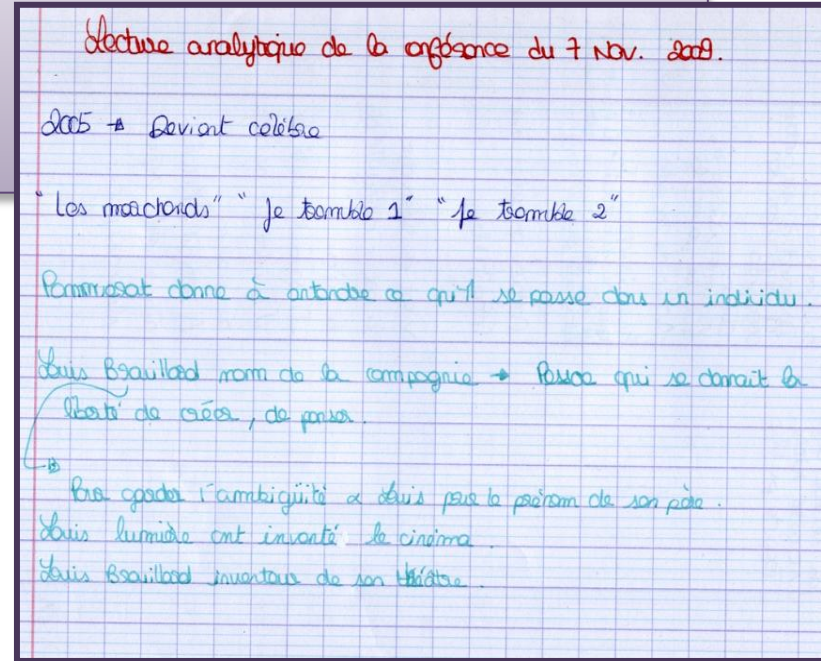 Lecture analytique de la conférence du 7 Nov. 2009.
2005 → Devient célèbre
"Les marchands" "Je tremble 1" "je tremble 2"
Pommerat donne à entendre ce qu'il se passe dans un individu.
Louis Brouillard nom de la compagnie → Parce qui se donnait la
liberté de créer, de penser.
→ Pour garder l'ambigüité Louis pour le prénom de son père.
Louis lumière ont inventé le cinéma.
Louis Brouillard inventeur de son théâtre.